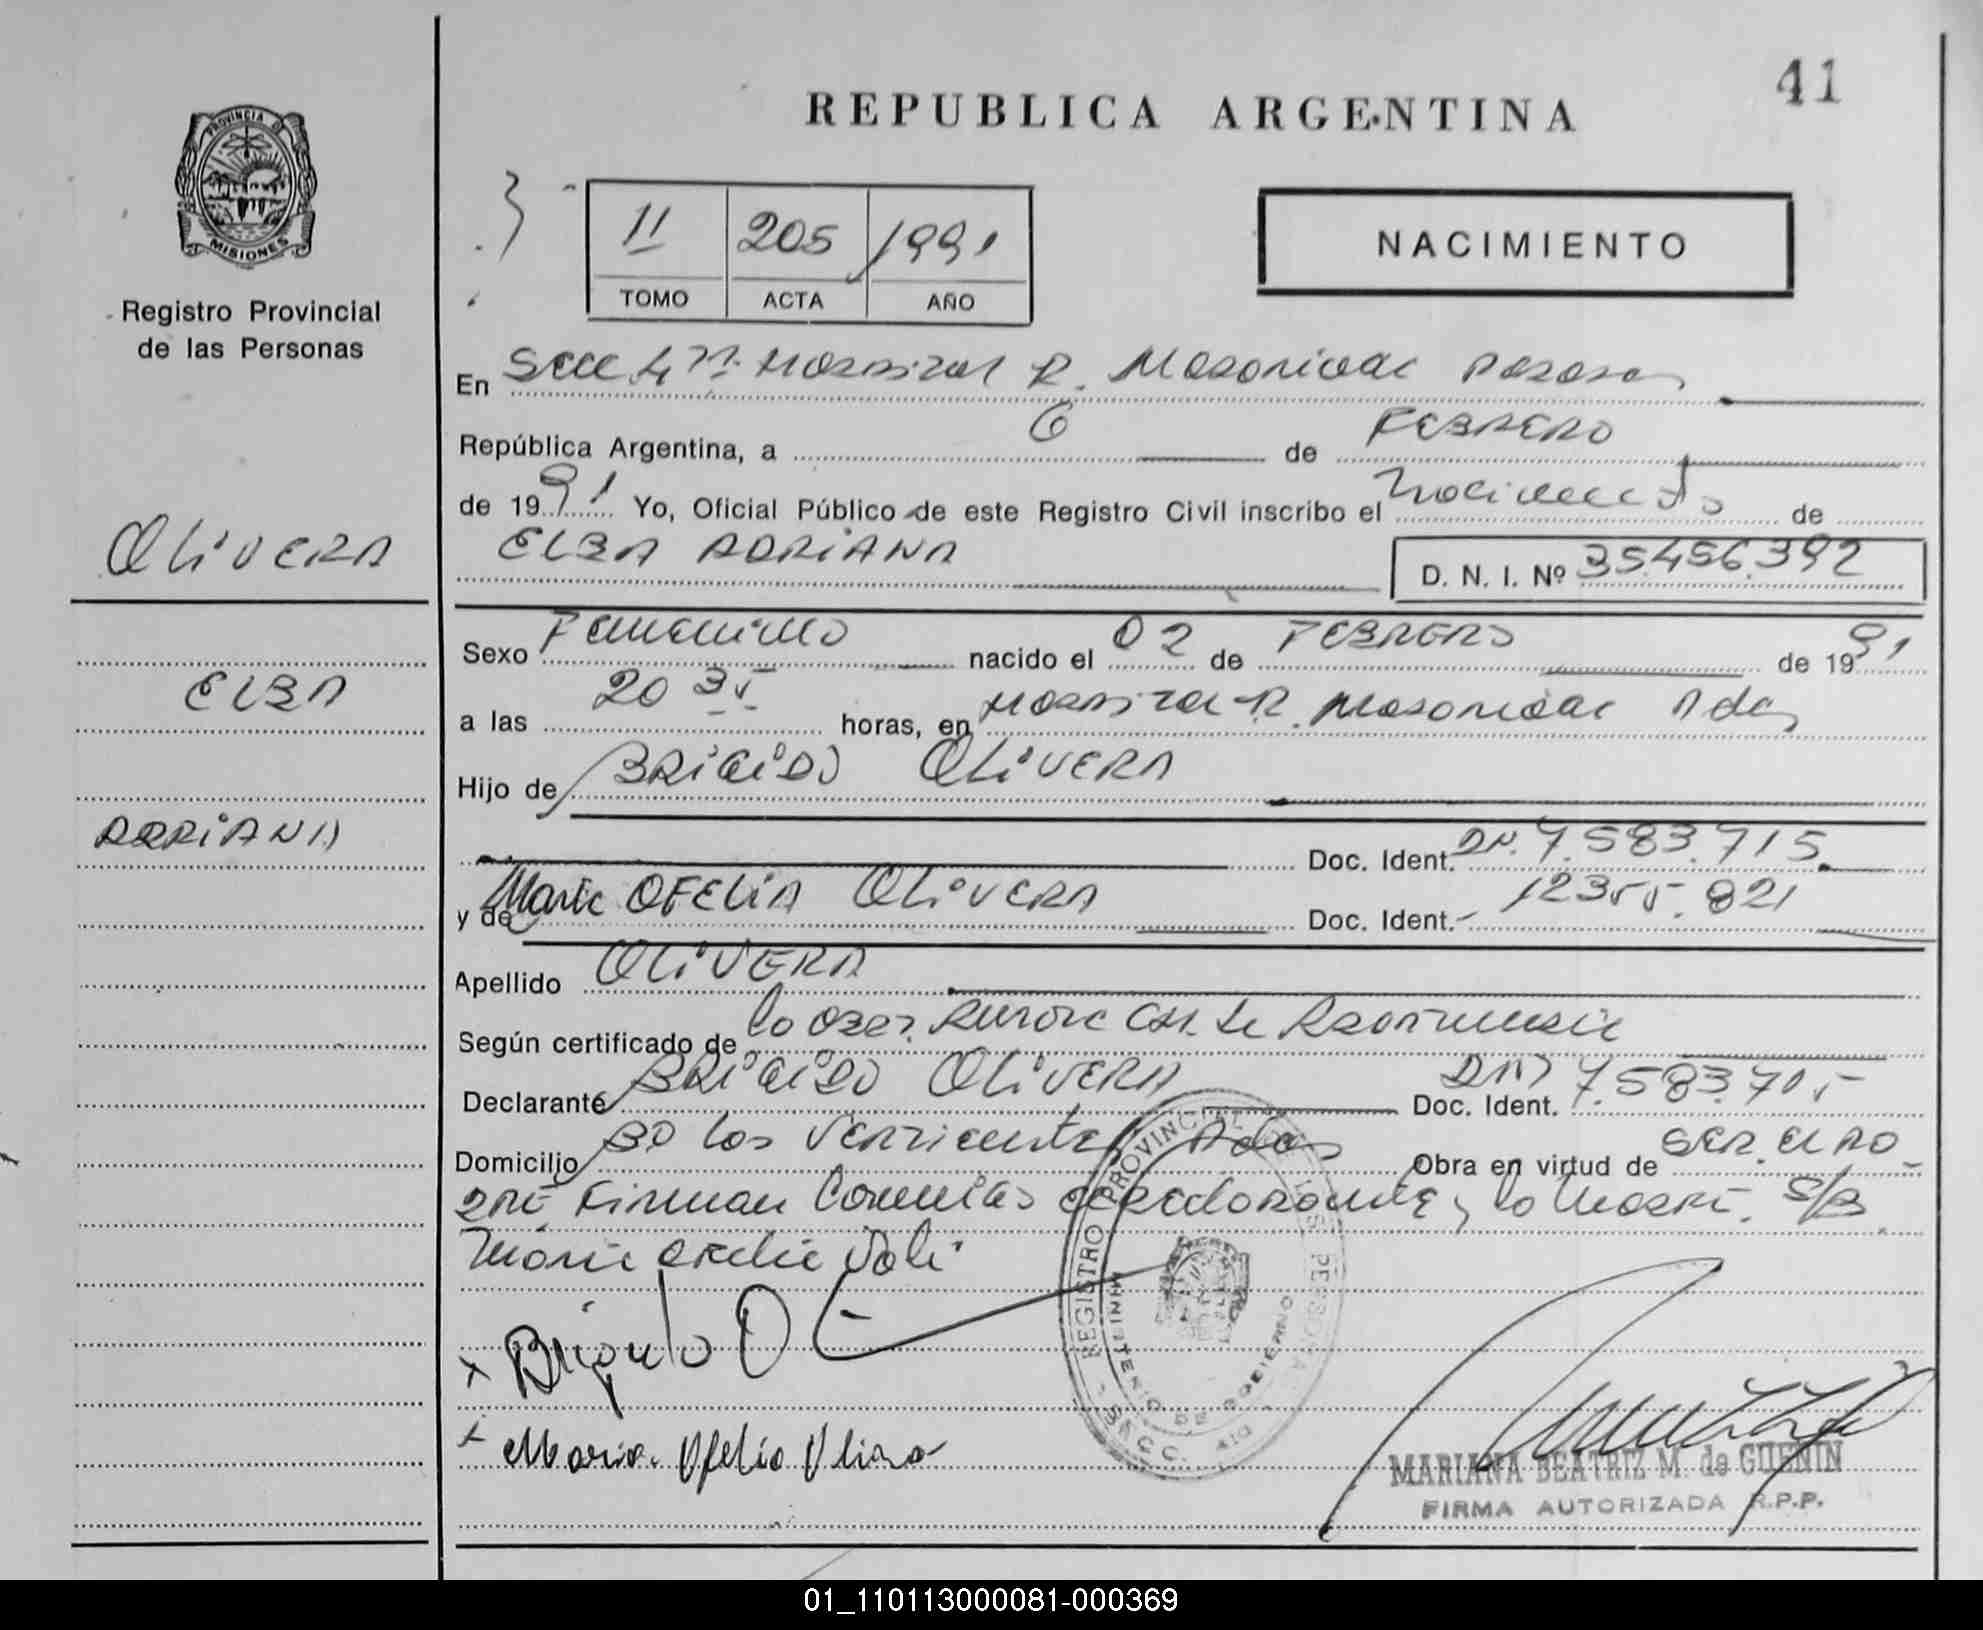 41
REPUBLICA ARGENTINA
PROVINCIA DE
MISIONES
Registro Provincial
de las Personas
11 205 1991
TOMO ACTA AÑO
NACIMIENTO
En Secc 4ta. Hospital R. Madariaga Posadas
República Argentina, a 6 de FEBRERO
de 1991 Yo, Oficial Público de este Registro Civil inscribo el nacimiento de
ELBA ADRIANA
D. N. I. Nº 35.456.392
OLIVERA
ELBA
ADRIANA
Sexo Femenino nacido el 02 de FEBRERO de 1991
a las 20 35 horas, en Hospital R. Madariaga Pdas
Hijo de BRIGIDO OLIVERA
Doc. Ident. DNI. 7.583.715
y de Maria OFELIA OLIVERA Doc. Ident. 12355.821
Apellido OLIVERA
Según certificado de la Obst.
Declarante BRIGIDO OLIVERA Doc. Ident. DNI 7.583.
Domicilio Bo Las Vertientes Pdas Obra en virtud de SER. EL PA
DRE Firman Con la
Maria Ofelia vale
x Brigido O
x Maria Ofelia Olivera
REGISTRO PROVINCIAL DE LAS PERSONAS
MINISTERIO DE GOBIERNO
MARIANA BEATRIZ M. de GUENIN
FIRMA AUTORIZADA R.P.P.
01_110113000081-000369